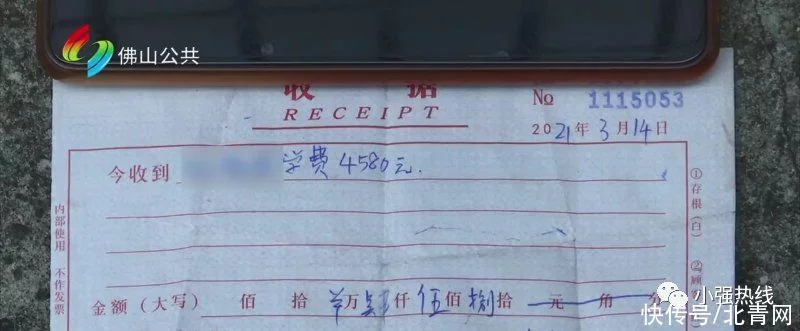 佛山公共
收 据
RECEIPT
№ 1115053
2021年3月14日
今收到 学费4580元.
①存根(白)
②顾
内部使用 不作发票
金额(大写) 佰 拾 万 仟 伍佰 捌拾 元 角 分
小强热线
快传号/北青网